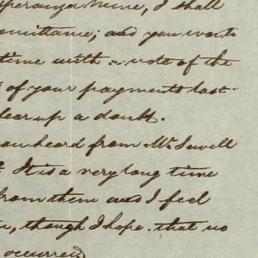 Esperanza Mine, I shall
remittance; and you want
time with a note of the
of your payments last
clear up a doubt.
you heard from Mr. Sewell
It is a very long time
from them and I feel
though I hope that no
occurred